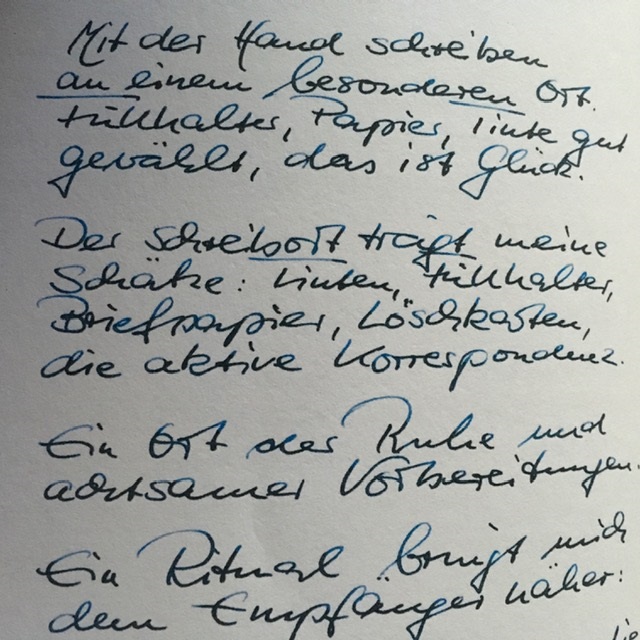 Mit der Hand schreiben
an einem besonderen Ort.
Füllhalter, Papier, Tinte gut
gewählt, das ist Glück.
Der Schreibort trägt meine
Schätze: Tinten, Füllhalter,
Briefpapier, Löschkasten,
die aktive Korrespondenz.
Ein Ort der Ruhe und
achtsamer Vorbereitungen.
Ein Ritual bringt mich
dem Empfänger näher: